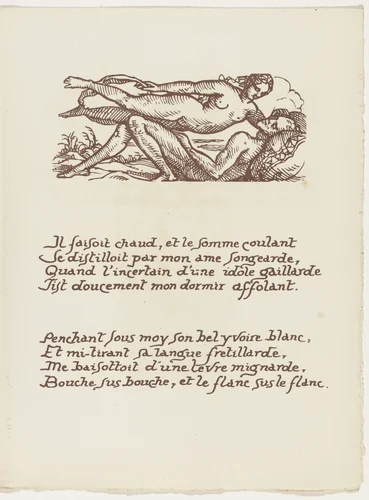 Il faisoit chaud, et le somme coulant
Se distilloit par mon ame songearde,
Quand l'incertain d'une idole gaillarde
Fist doucement mon dormir affolant.
Penchant sous moy son bel yvoire blanc,
Et mi-tirant sa langue fretillarde,
Me baisottoit d'une levre mignarde,
Bouche sus bouche, et le flanc sus le flanc.